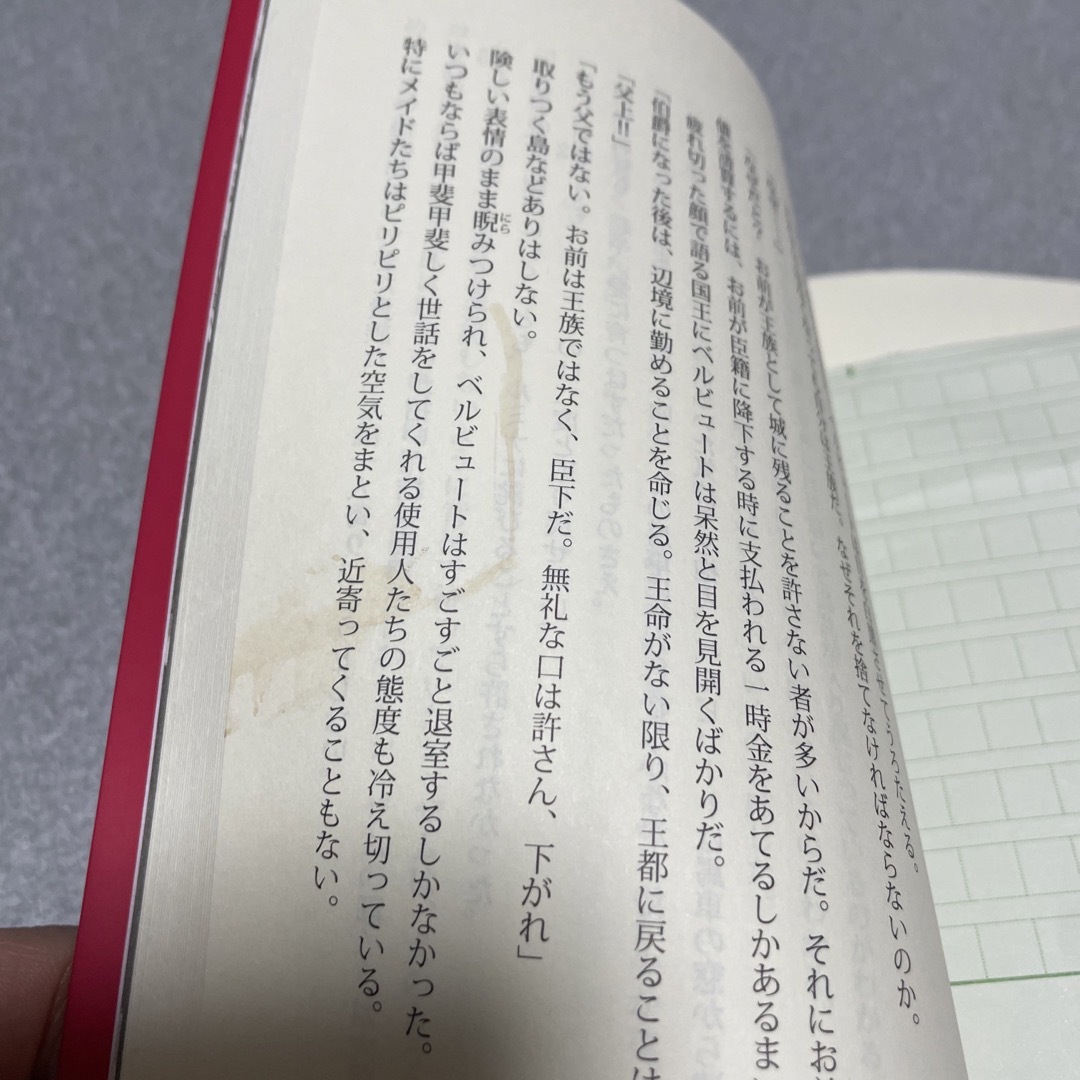 させてうろたえる。
王族だ。なぜそれを捨てなければならないのか。
お前が王族として城に残ることを許さない者が多いからだ。それにお前
するには、お前が臣籍に降下する時に支払われる一時金をあてるしかあるま
疲れ切った顔で語る国王にベルビュートは呆然と目を見開くばかりだ。
「伯爵になった後は、辺境に勤めることを命じる。王命がない限り、王都に戻ることは
「父上!!」
「もう父ではない。お前は王族ではなく、臣下だ。無礼な口は許さん、下がれ」
取りつく島などありはしない。
険しい表情のまま睨みつけられ、ベルビュートはすごすごと退室するしかなかった。
にら
いつもならば甲斐甲斐しく世話をしてくれる使用人たちの態度も冷え切っている。
特にメイドたちはピリピリとした空気をまとい、近寄ってくることもない。